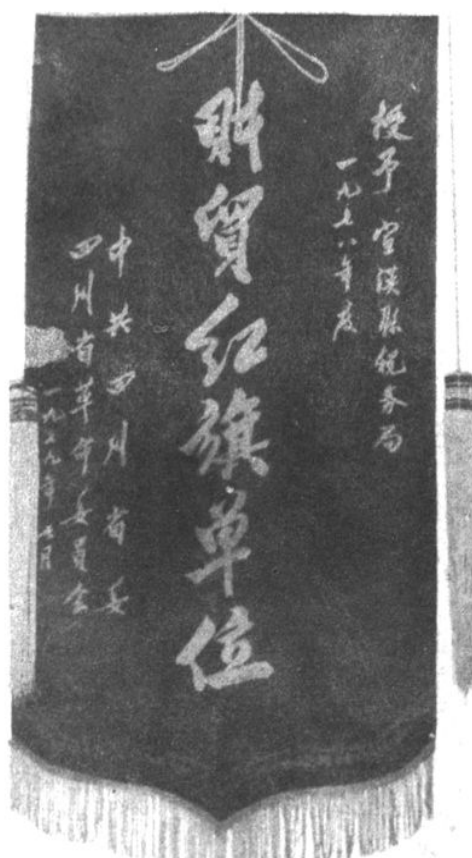 授予 宣漢縣税务局
一九七八年度
財貿红旗单位
中共四川省委
四川省革命委员会
一九七九年七月